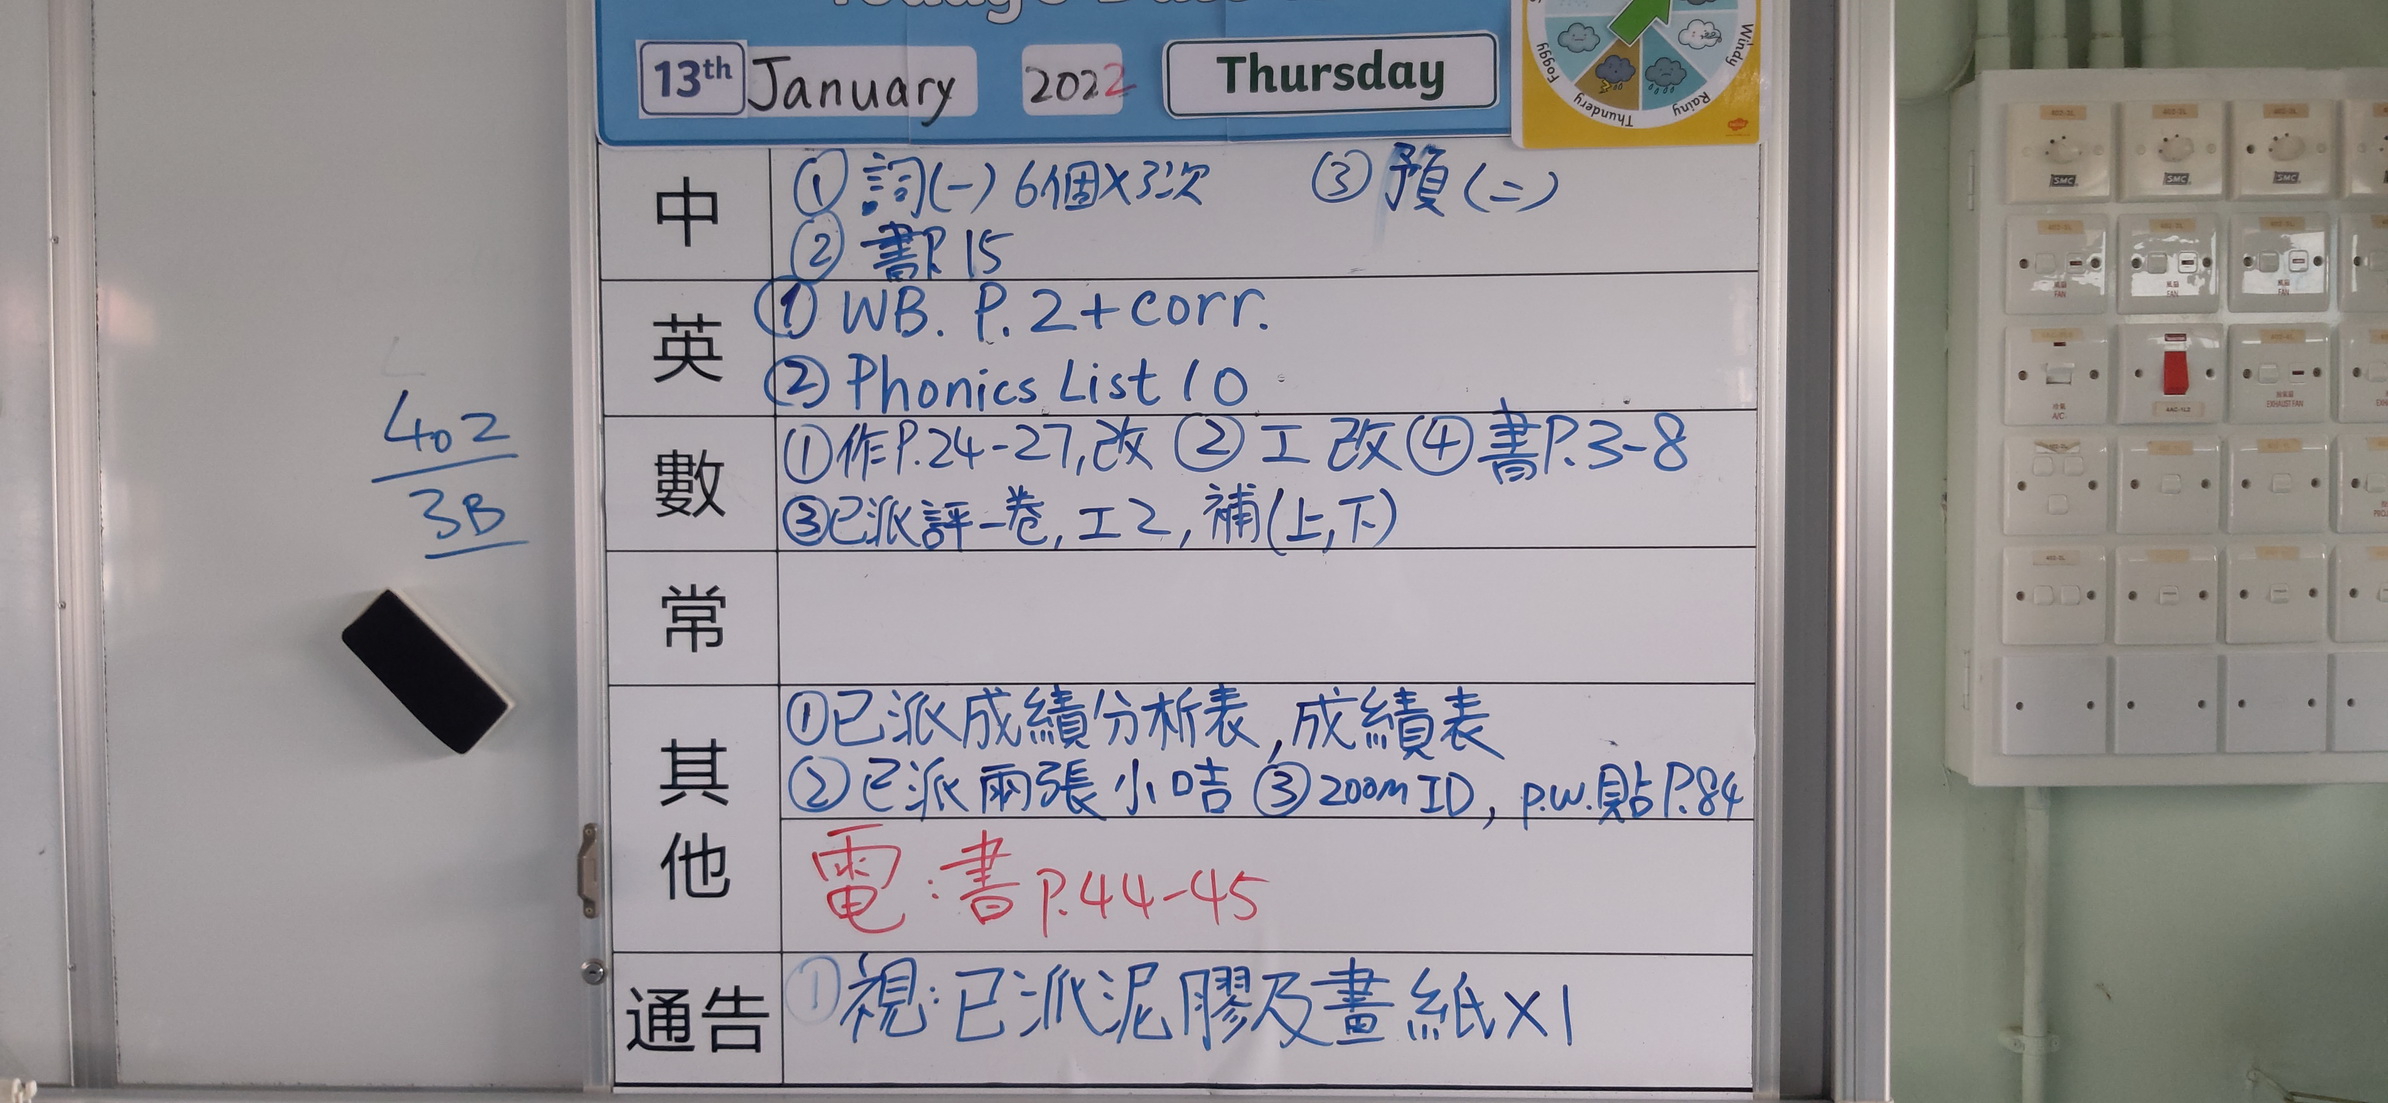 13th January 2022 Thursday
Foggy
Thundery
Rainy
Windy
中
① 詞(一) 6個×3次 ③ 預(二)
② 書P.15
英
① WB. P.2+corr.
② Phonics List 10
數
①作P.24-27,改 ②工改 ④書P.3-8
③已派評一卷,工2,補(上,下)
常
其他
①已派成績分析表,成績表
②已派兩張小咭 ③zoom ID, p.w.貼P.84
電:書P.44-45
通告
①視:已派泥膠及畫紙×1
402
3B
SMC
SMC
SMC
FAN
FAN
FAN
A/C
EXHAUST FAN